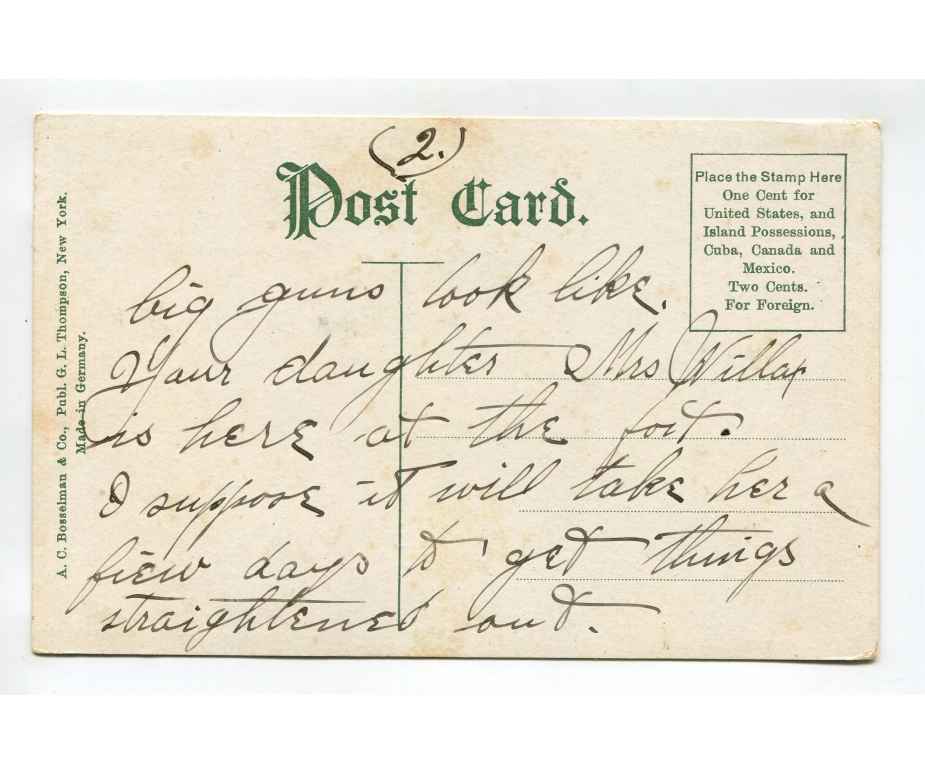 (2.)
Post Card.
Place the Stamp Here
One Cent for
United States, and
Island Possessions,
Cuba, Canada and
Mexico.
Two Cents.
For Foreign.
A. C. Bosselman & Co., Publ. G. L. Thompson, New York.
Made in Germany.
big guns look like.
Your daughter Mrs Willax
is here at the fort.
I suppose it will take her a
fiew days to get things
straightened out.